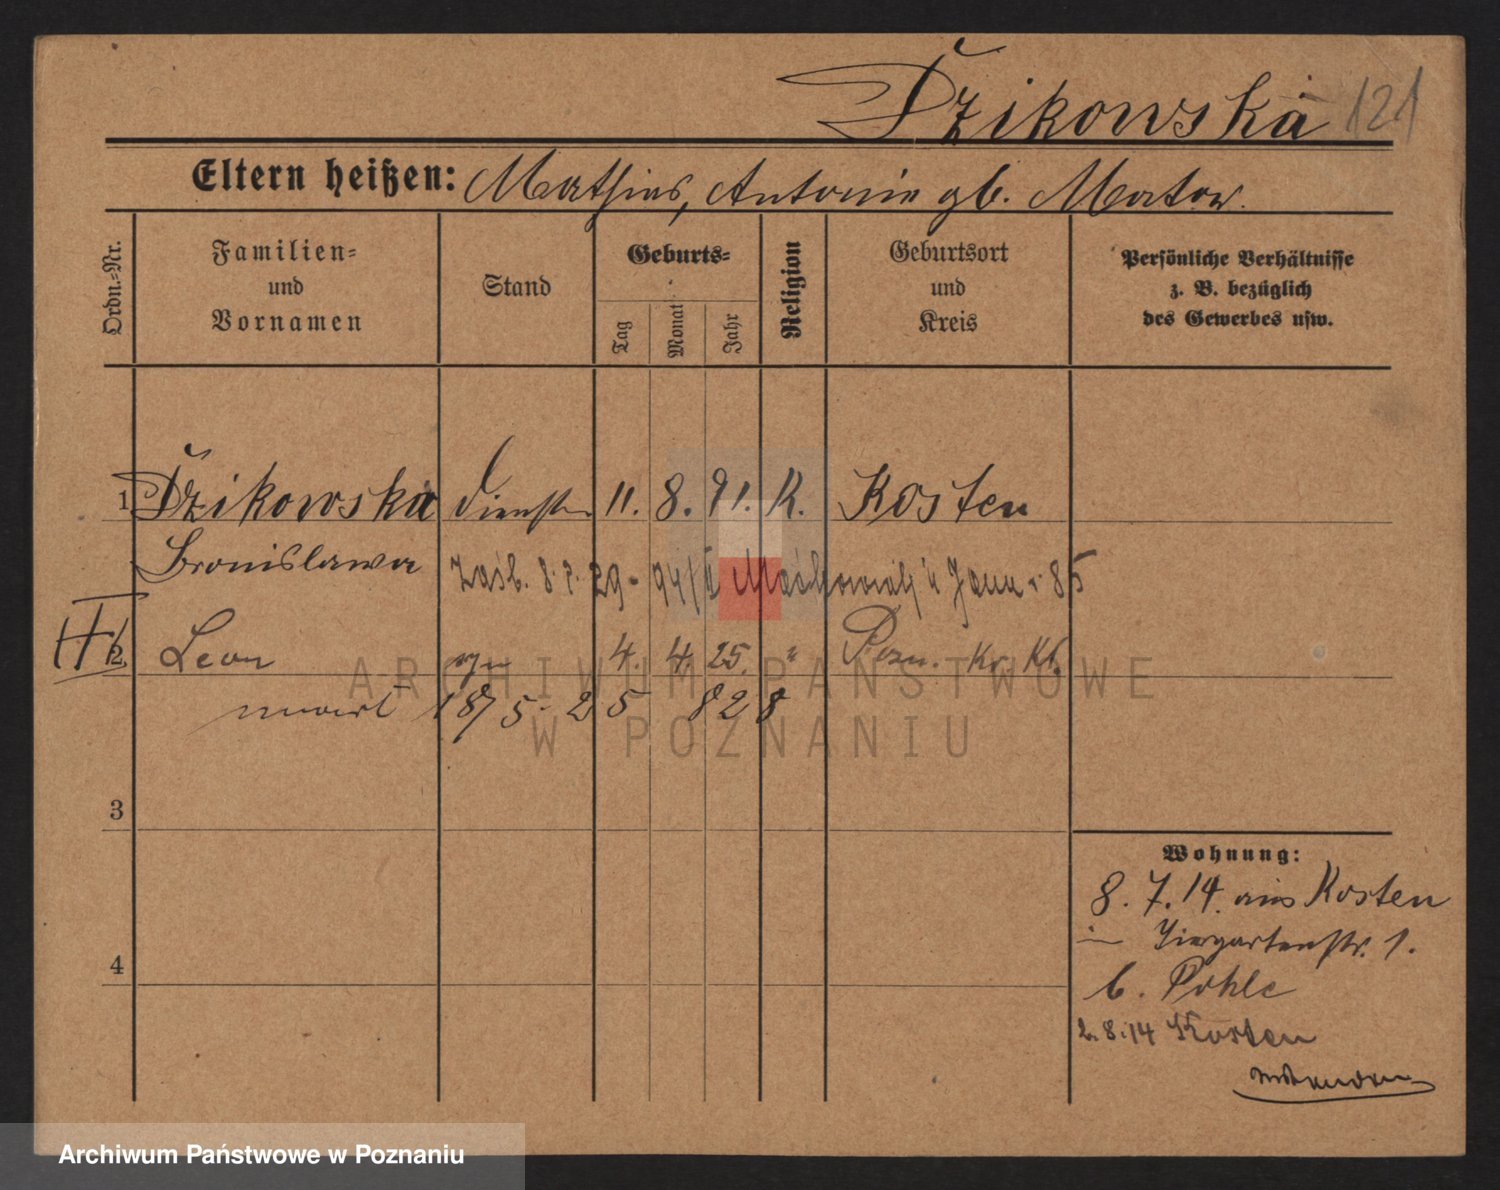 Dzikowska 121
Eltern heißen: Mathias, Antonie gb. Mator.
Ordn.-Nr.
Familien- und Vornamen
Stand
Geburts-
Tag
Monat
Jahr
Religion
Geburtsort und Kreis
Persönliche Verhältnisse z. B. bezüglich des Gewerbes usw.
1 Dzikowska Dienstm 11. 8. 91. K. Kosten
Bronislawa
Zaśb. 8.7.29 - 94/I
2 Leon syn 4. 4. 25. " Pozn.
umarł 1875-25 828
ARCHIWUM PAŃSTWOWE
W POZNANIU
3
4
Wohnung:
8. 7. 14. aus Kosten
in Tiergartenstr. 1.
b. Pohle
2.8.14 Kosten
Archiwum Państwowe w Poznaniu